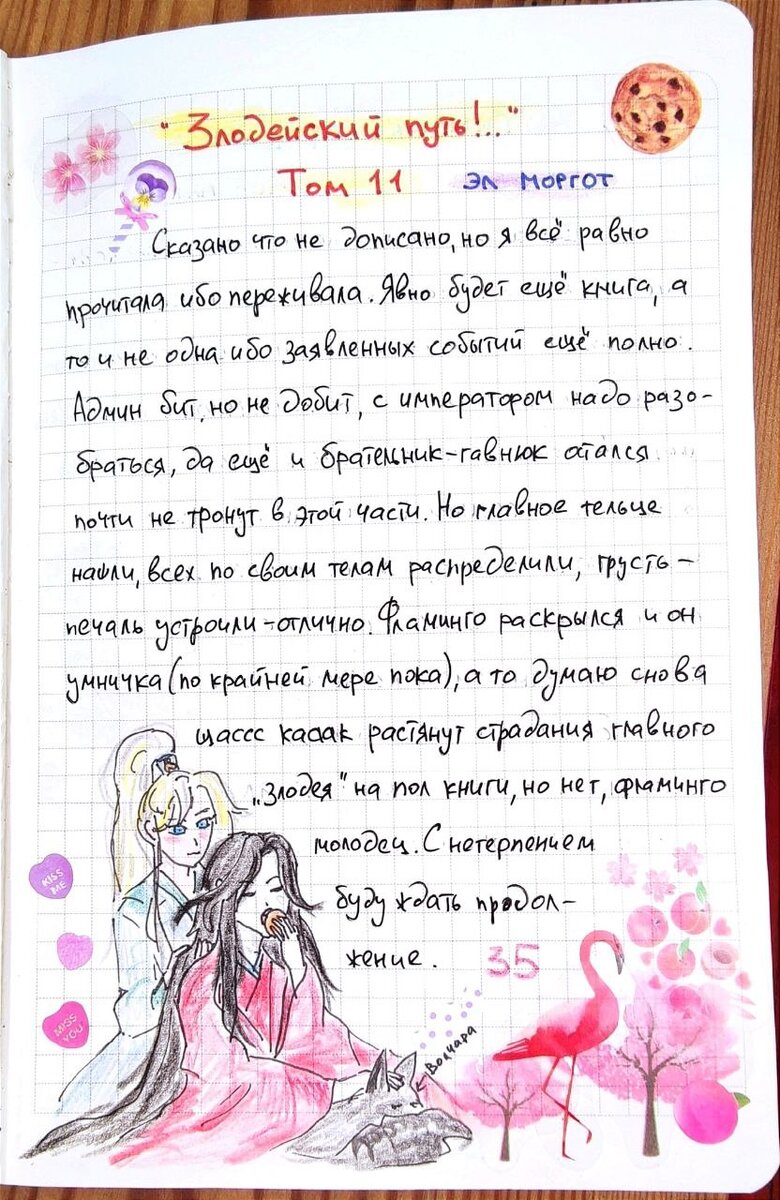 "Злодейский путь!.."
Том 11 Эл Моргот
Сказано что не дописано, но я всё равно
прочитала ибо переживала. Явно будет ещё книга, а
то и не одна ибо заявленных событий ещё полно.
Админ бит, но не добит, с императором надо разо-
браться, да ещё и брательник-гавнюк остался
почти не тронут в этой части. Но главное тельце
нашли, всех по своим телам распределили, грусть-
печаль устроили-отлично. Фламинго раскрылся и он
умничка (по крайней мере пока), а то думаю снова
щассс кааак растянут страдания главного
„злодея" на пол книги, но нет, фламинго
молодец. С нетерпением
буду ждать продол-
жение. 35
KISS ME
MISS YOU
Волчара